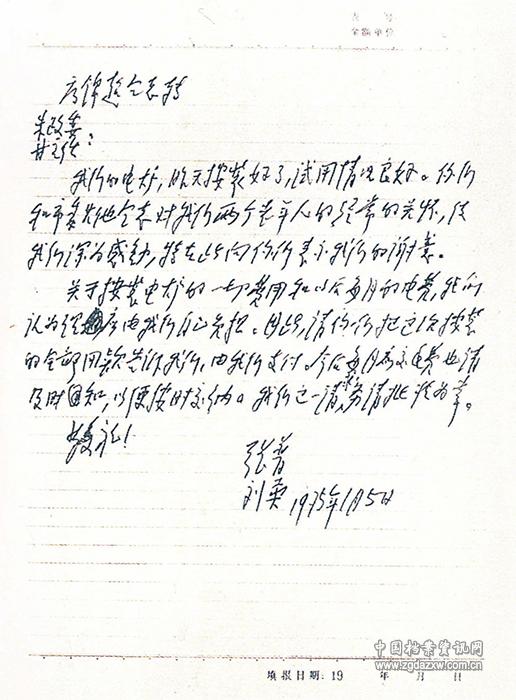 表 号
金额单位
方锦超同志转
朱政委
甘主任：
我们的电灯，昨天按装好了，试用情况良好。你们
和市委其他同志对我们两个老年人的经常的关怀，使
我们深为感动，特在此向你们表示我们的谢意。
关于按装电灯的一切费用和以后每月的电费，我们
认为应由我们自己负担。因此，请你们把这次按装
的全部用款告诉我们，由我们支付。今后每月应交电费也请
及时通知，以便按时交纳。我们这一请求，务请批准为幸。
敬礼！
张普
刘英 1975年1月5日
中国档案资讯网
www.zgdazxw.com.cn
填报日期：19 年 月 日